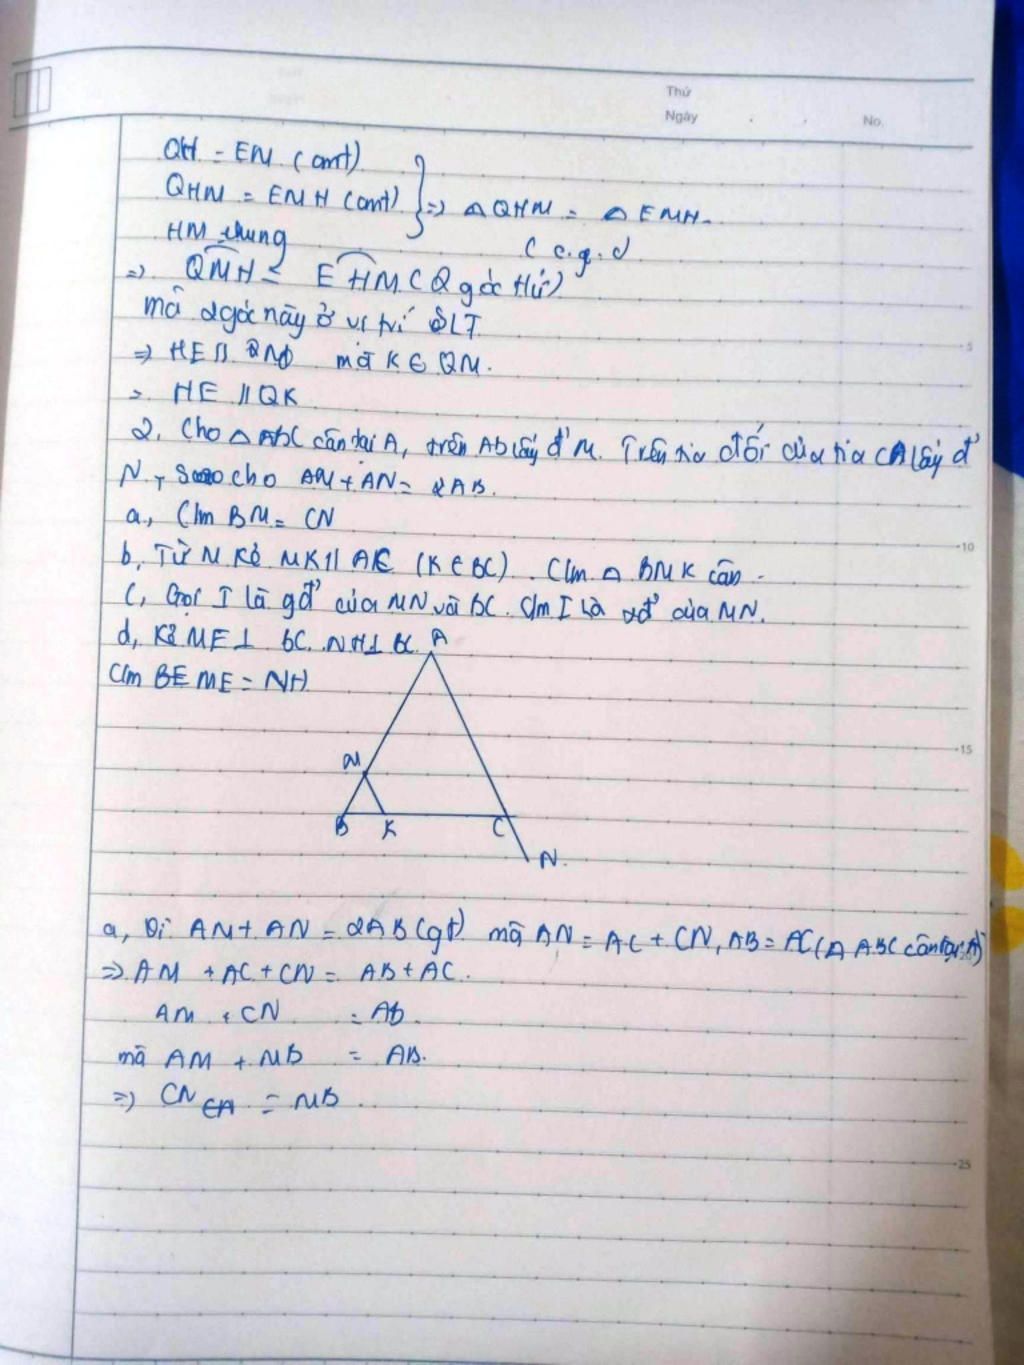 Thứ
Ngày
No.
QH = EM (cmt)
QHM = EMH (cmt) } => △QHM = △EMH.
HM chung
(c.g.c)
=> QMH = EHM (2 góc t/ứ)
mà 2 góc này ở vị trí SLT
=> HE // QM mà K ∈ QM.
=> HE // QK
2, Cho △ABC cân tại A, trên AB lấy đ' M. Trên tia đối của tia CA lấy đ'
N, sao cho AM + AN = 2AB.
a, C/m BM = CN
b, Từ M kẻ MK // AC (K ∈ BC). C/m △ BMK cân.
C, Gọi I là gđ' của MN và BC. C/m I là tđ' của MN.
d, Kẻ ME ⊥ BC, NH ⊥ BC.
C/m BE ME = NH
A
M
B K C
N.
a, Vì AM + AN = 2AB (gt) mà AN = AC + CN, AB = AC (△ ABC cân tại A)
=> AM + AC + CN = AB + AC.
AM + CN = AB.
mà AM + MB = AB.
=> CN = MB
5
10
15
25